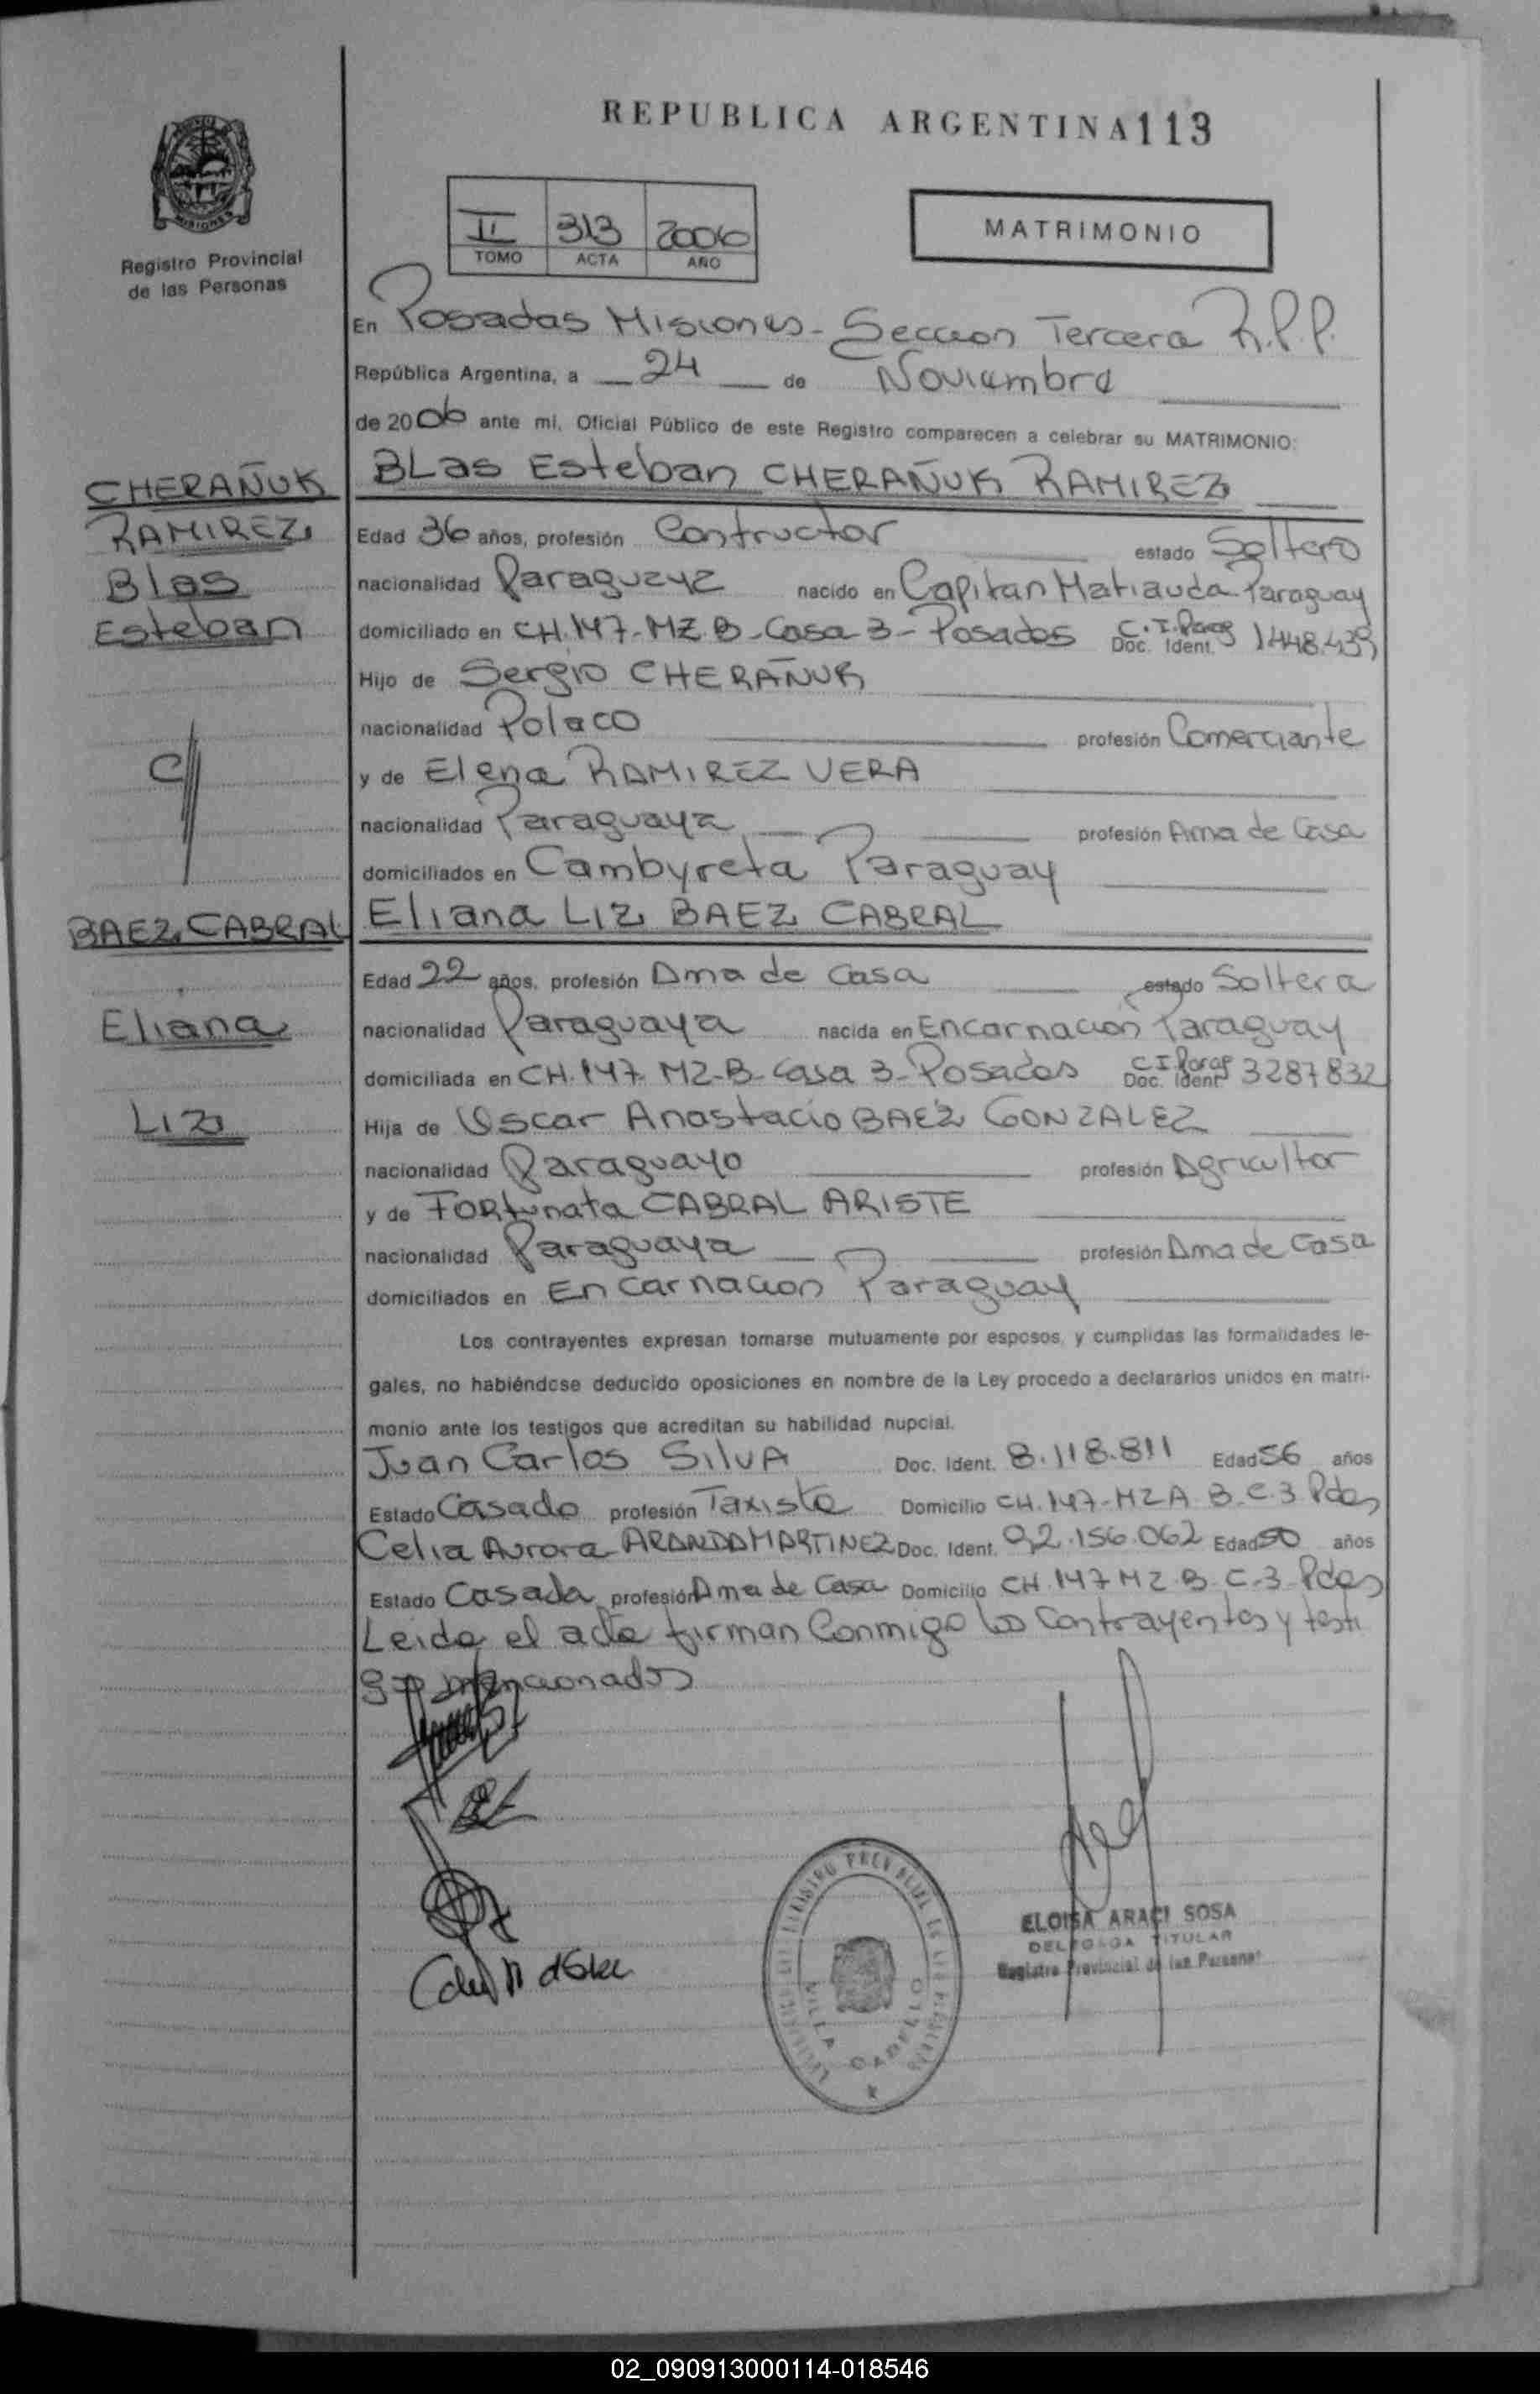 REPUBLICA ARGENTINA 113
MISIONES
Registro Provincial
de las Personas
II 313 2006
TOMO ACTA AÑO
MATRIMONIO
En Posadas Misiones - Seccion Tercera R.P.P.
República Argentina, a 24 de Noviembre
de 2006 ante mi, Oficial Público de este Registro comparecen a celebrar su MATRIMONIO:
CHERAÑUK
RAMIREZ
Blas
Esteban
BLas Esteban CHERAÑUK RAMIREZ
Edad 36 años, profesión Contructor estado Soltero
nacionalidad Paraguaya nacido en Capitan Matiauda Paraguay
domiciliado en CH.147-MZ.B-Casa 3-Posadas C.I.Parag Doc. Ident. 1448.439
Hijo de Sergio CHERAÑUK
nacionalidad Polaco profesión Comerciante
y de Elena RAMIREZ VERA
nacionalidad Paraguaya profesión Ama de Casa
domiciliados en Cambyreta Paraguay
BAEZ CABRAL
Eliana
LIZ
Eliana LIZ BAEZ CABRAL
Edad 22 años, profesión Ama de Casa estado Soltera
nacionalidad Paraguaya nacida en Encarnacion Paraguay
domiciliada en CH.147-MZ-B-Casa 3-Posadas C.I.Parag Doc. Ident 3287832
Hija de Oscar Anastacio BAEZ GONZALEZ
nacionalidad Paraguayo profesión Agricultor
y de FORtunata CABRAL ARISTE
nacionalidad Paraguaya profesión Ama de Casa
domiciliados en Encarnacion Paraguay
Los contrayentes expresan tomarse mutuamente por esposos, y cumplidas las formalidades le-
gales, no habiéndose deducido oposiciones en nombre de la Ley procedo a declararlos unidos en matri-
monio ante los testigos que acreditan su habilidad nupcial.
Juan Carlos SILVA Doc. Ident. 8.118.811 Edad 56 años
Estado Casado profesión Taxista Domicilio CH.147-MZA B.C.3 Pdas
Celia Aurora ARANDA MARTINEZ Doc. Ident. 92.156.062 Edad 50 años
Estado Casada profesión Ama de Casa Domicilio CH.147 MZ.B-C-3-Pdas
Leida el acta firman Conmigo los Contrayentes y testi
gos mencionados
VILLA CABELLO
ELOISA ARACI SOSA
DELEGADA TITULAR
Registro Provincial de las Personas
02_090913000114-018546